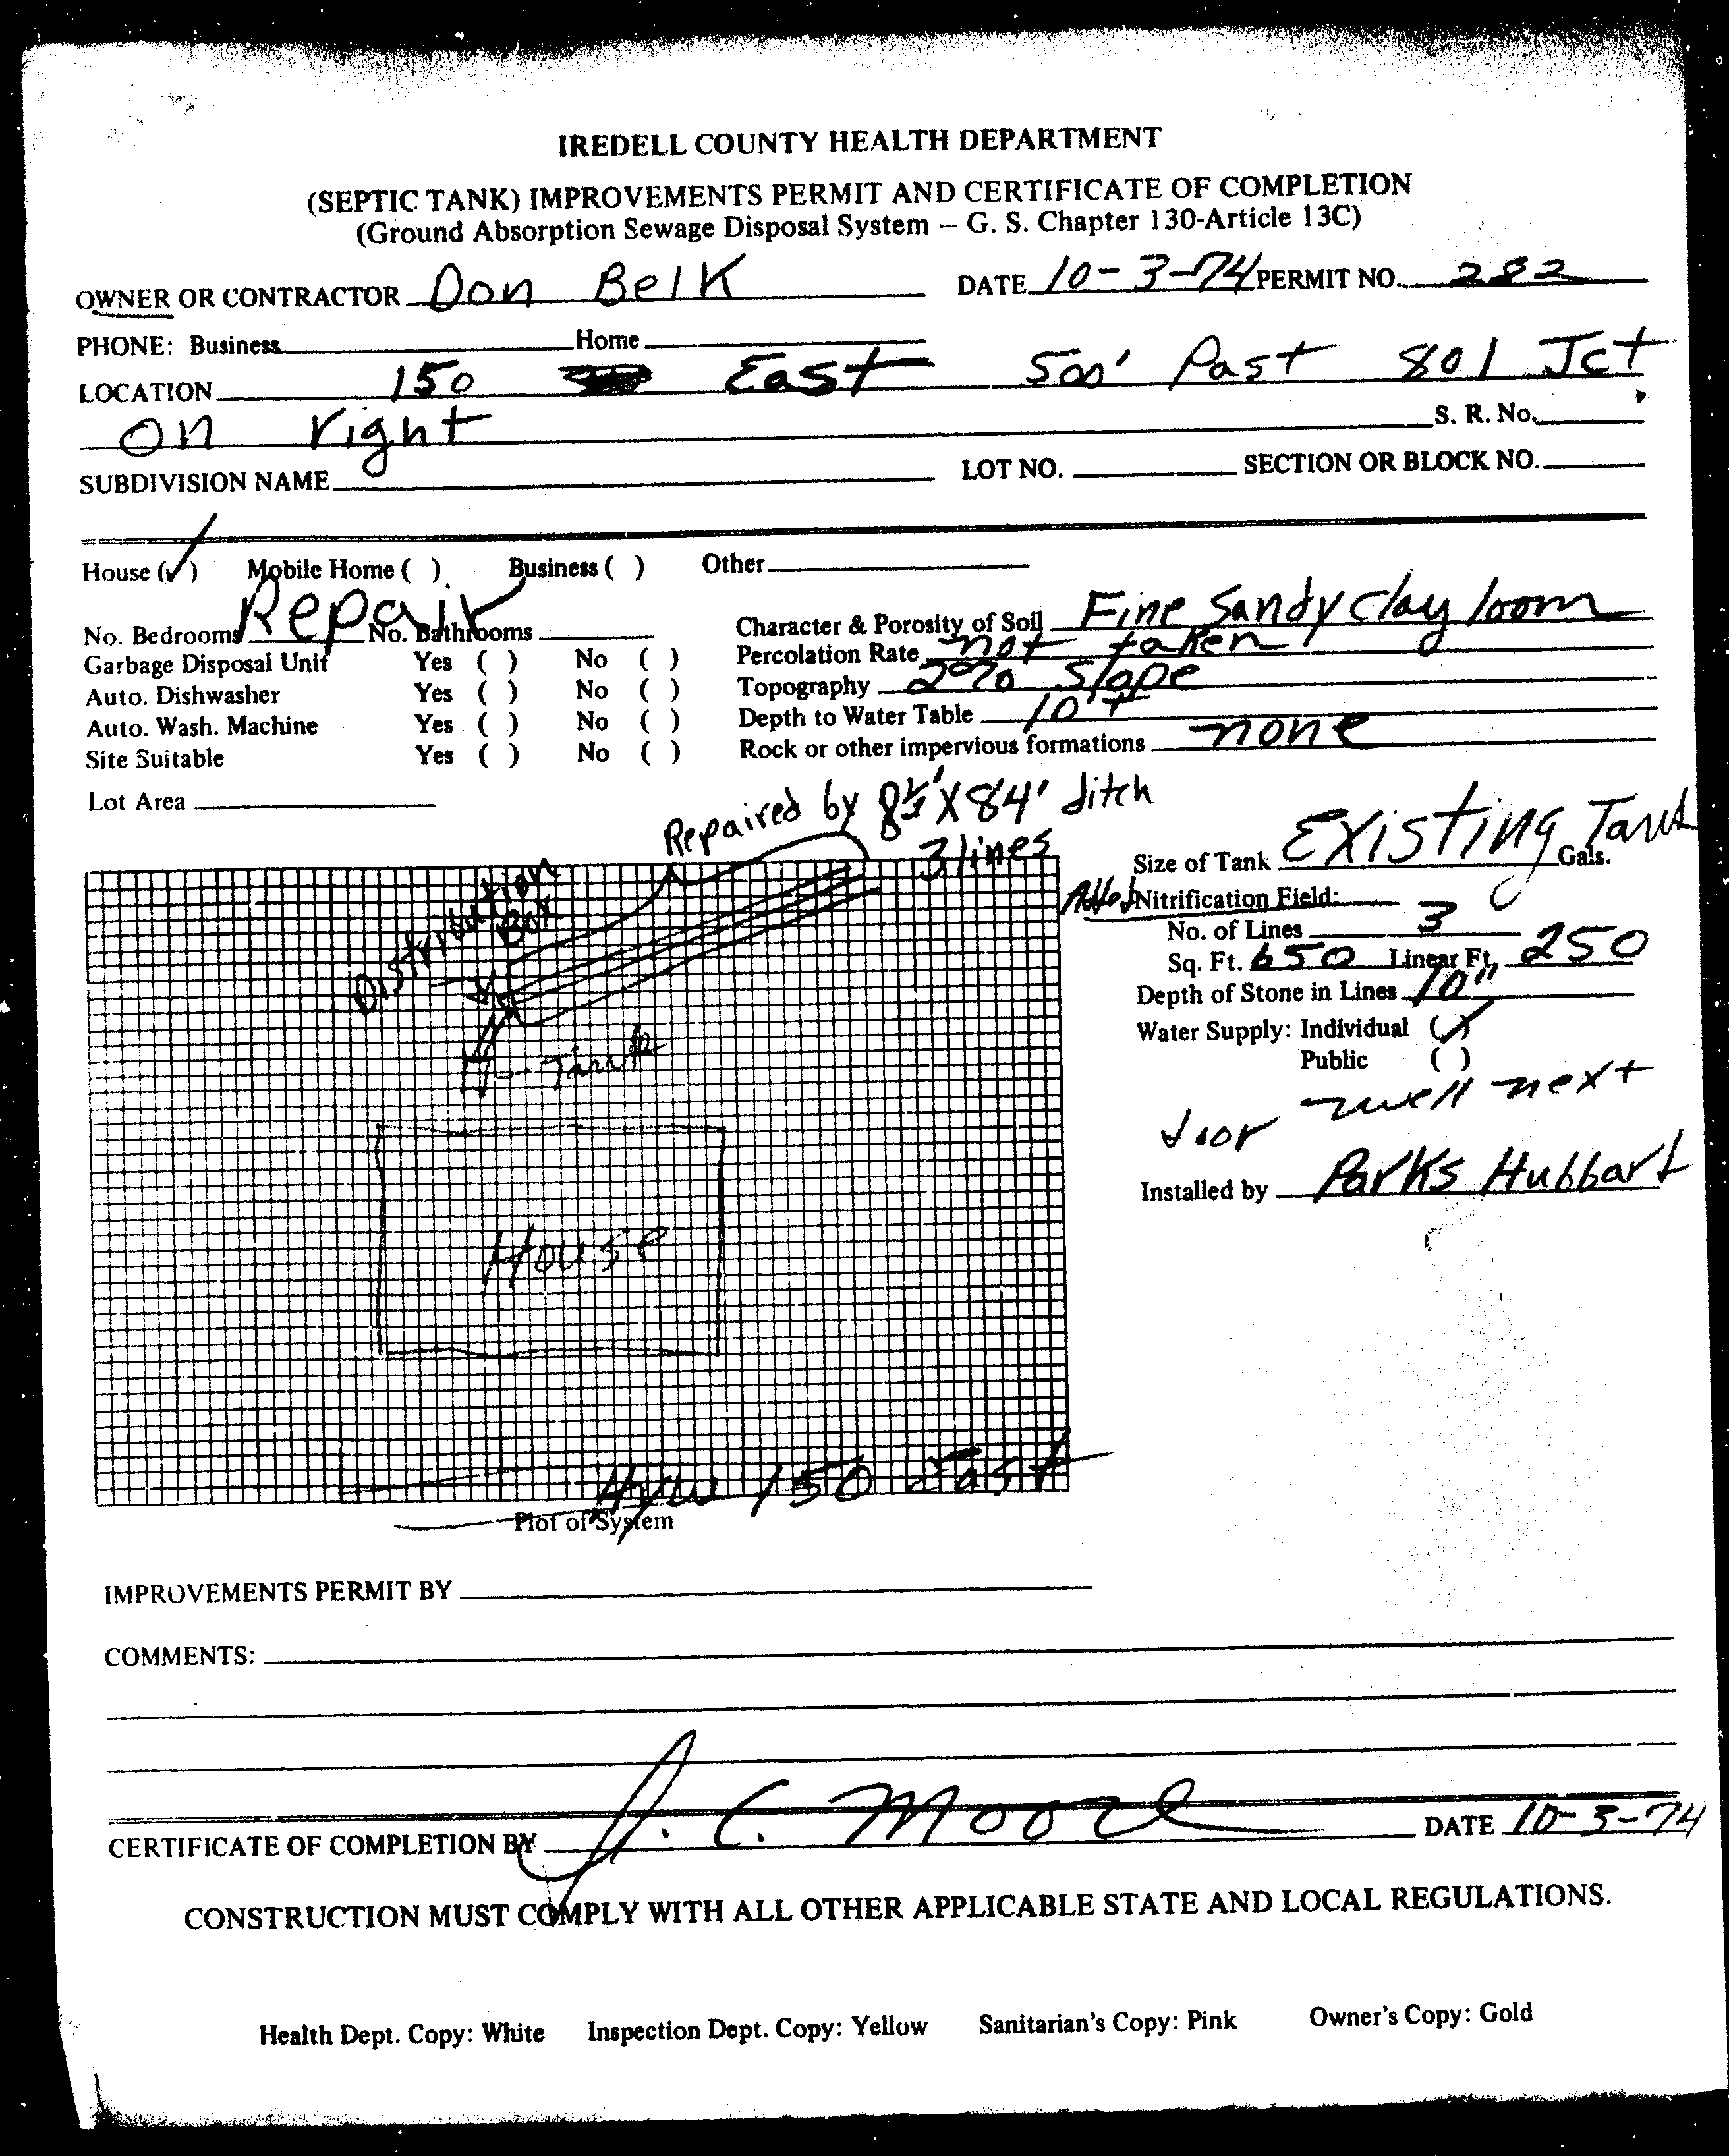 IREDELL COUNTY HEALTH DEPARTMENT
(SEPTIC TANK) IMPROVEMENTS PERMIT AND CERTIFICATE OF COMPLETION
(Ground Absorption Sewage Disposal System — G. S. Chapter 130-Article 13C)
OWNER OR CONTRACTOR Don Belk DATE 10-3-74 PERMIT NO. 282
PHONE: Business Home
LOCATION 150 East 500' Past 801 Jct
on right S. R. No.
SUBDIVISION NAME LOT NO. SECTION OR BLOCK NO.
House (✓) Mobile Home ( ) Business ( ) Other
Repair
No. Bedrooms No. Bathrooms
Garbage Disposal Unit Yes ( ) No ( )
Auto. Dishwasher Yes ( ) No ( )
Auto. Wash. Machine Yes ( ) No ( )
Site Suitable Yes ( ) No ( )
Lot Area
Character & Porosity of Soil Fine Sandy clay loom
Percolation Rate not taken
Topography 2% Slope
Depth to Water Table 10'+
Rock or other impervious formations none
Repaired by 8 1/2' X 84' ditch
3 lines
Distribution
Box
Tank
House
Hyw 150 East
Plot of System
Size of Tank Existing Tank Gals.
Added Nitrification Field:
No. of Lines 3
Sq. Ft. 650 Linear Ft. 250
Depth of Stone in Lines 10"
Water Supply: Individual (✓)
Public ( )
well next
door
Installed by Parks Hubbard
IMPROVEMENTS PERMIT BY
COMMENTS:
CERTIFICATE OF COMPLETION BY J. C. Moore DATE 10-3-74
CONSTRUCTION MUST COMPLY WITH ALL OTHER APPLICABLE STATE AND LOCAL REGULATIONS.
Health Dept. Copy: White Inspection Dept. Copy: Yellow Sanitarian's Copy: Pink Owner's Copy: Gold